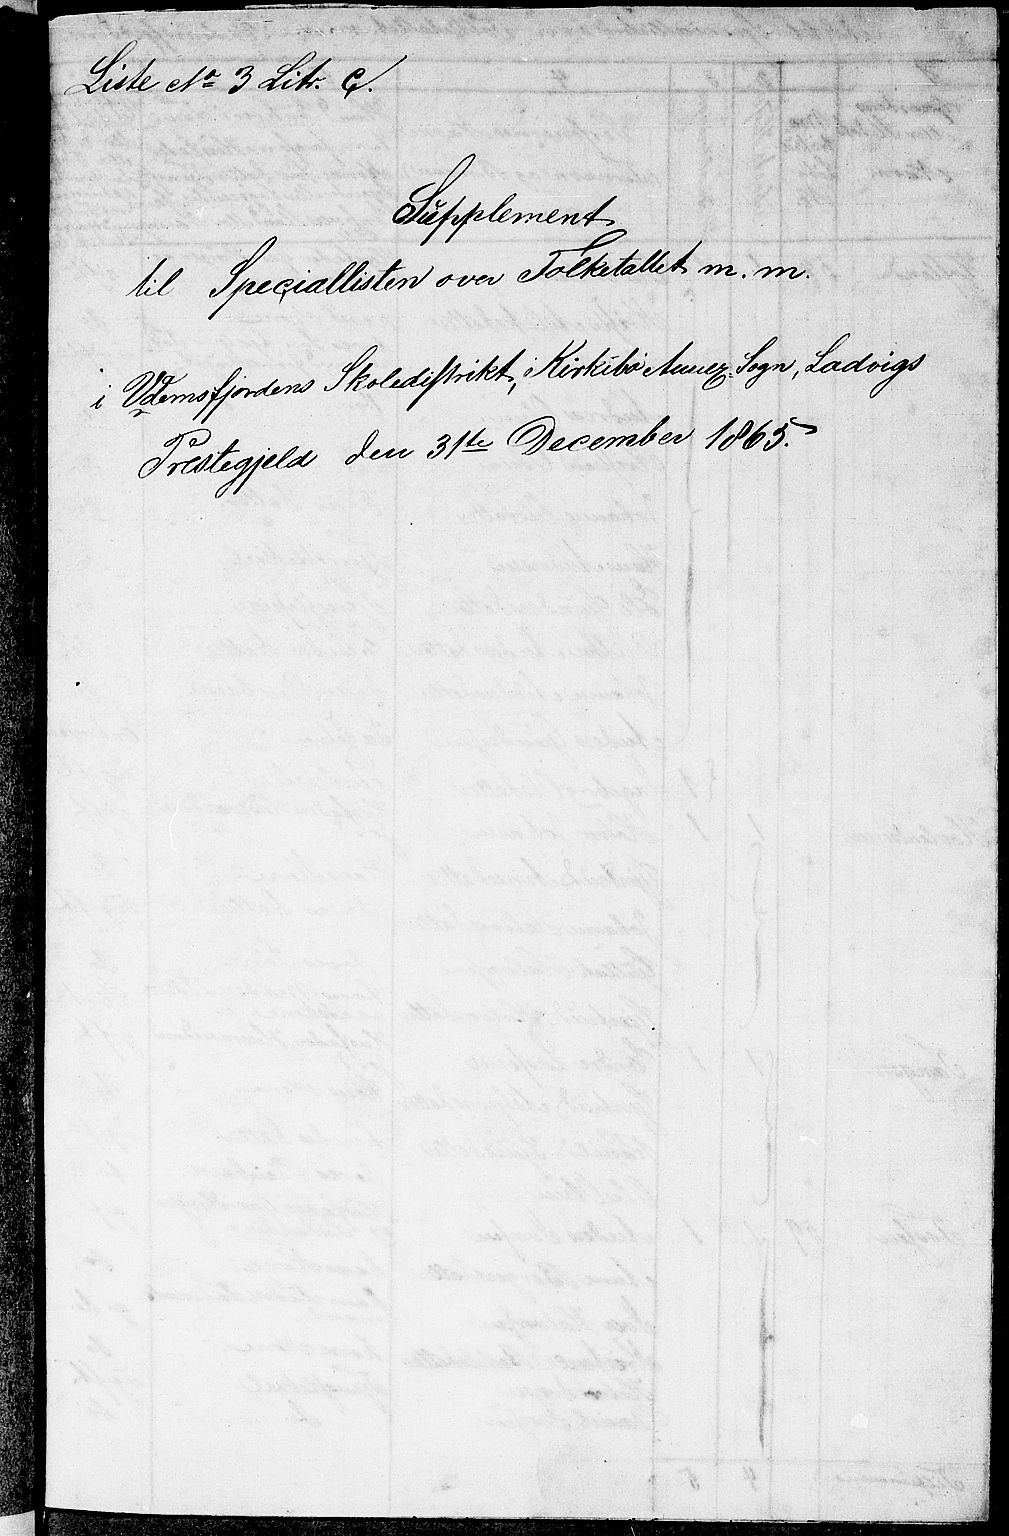 Liste No 3 Litr. C.
Supplement
til Speciallisten over Folketallet m. m.
i Vdemsfjordens Skoledistrikt, i Kirkebø Annex-Sogn, Ladvigs
Præstegjeld den 31te December 1865.